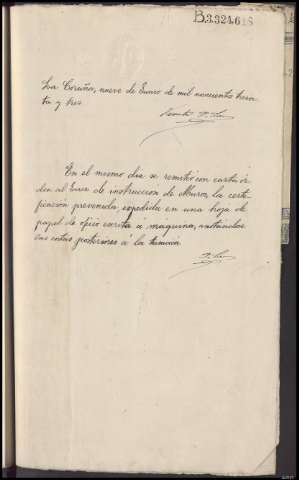 B.3.324.618
La Coruña, nueve de Enero de mil novecientos trein
ta y tres.
En el mismo dia se remitió con carta or
den al Juez de instruccion de Muros, la certi
ficación prevenida, expedida en una hoja de
papel de oficio escrita á maquina,
las costas posteriores á la